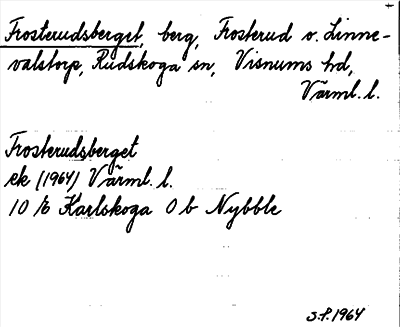 Frosterudsberget, berg, Frosterud o. Linne-
valstorp, Rudskoga sn, Visnums hd,
Värml. l.
Frosterudsberget
ek (1964) Värml. l.
10 E Karlskoga 0 b Nybble
S.P. 1964